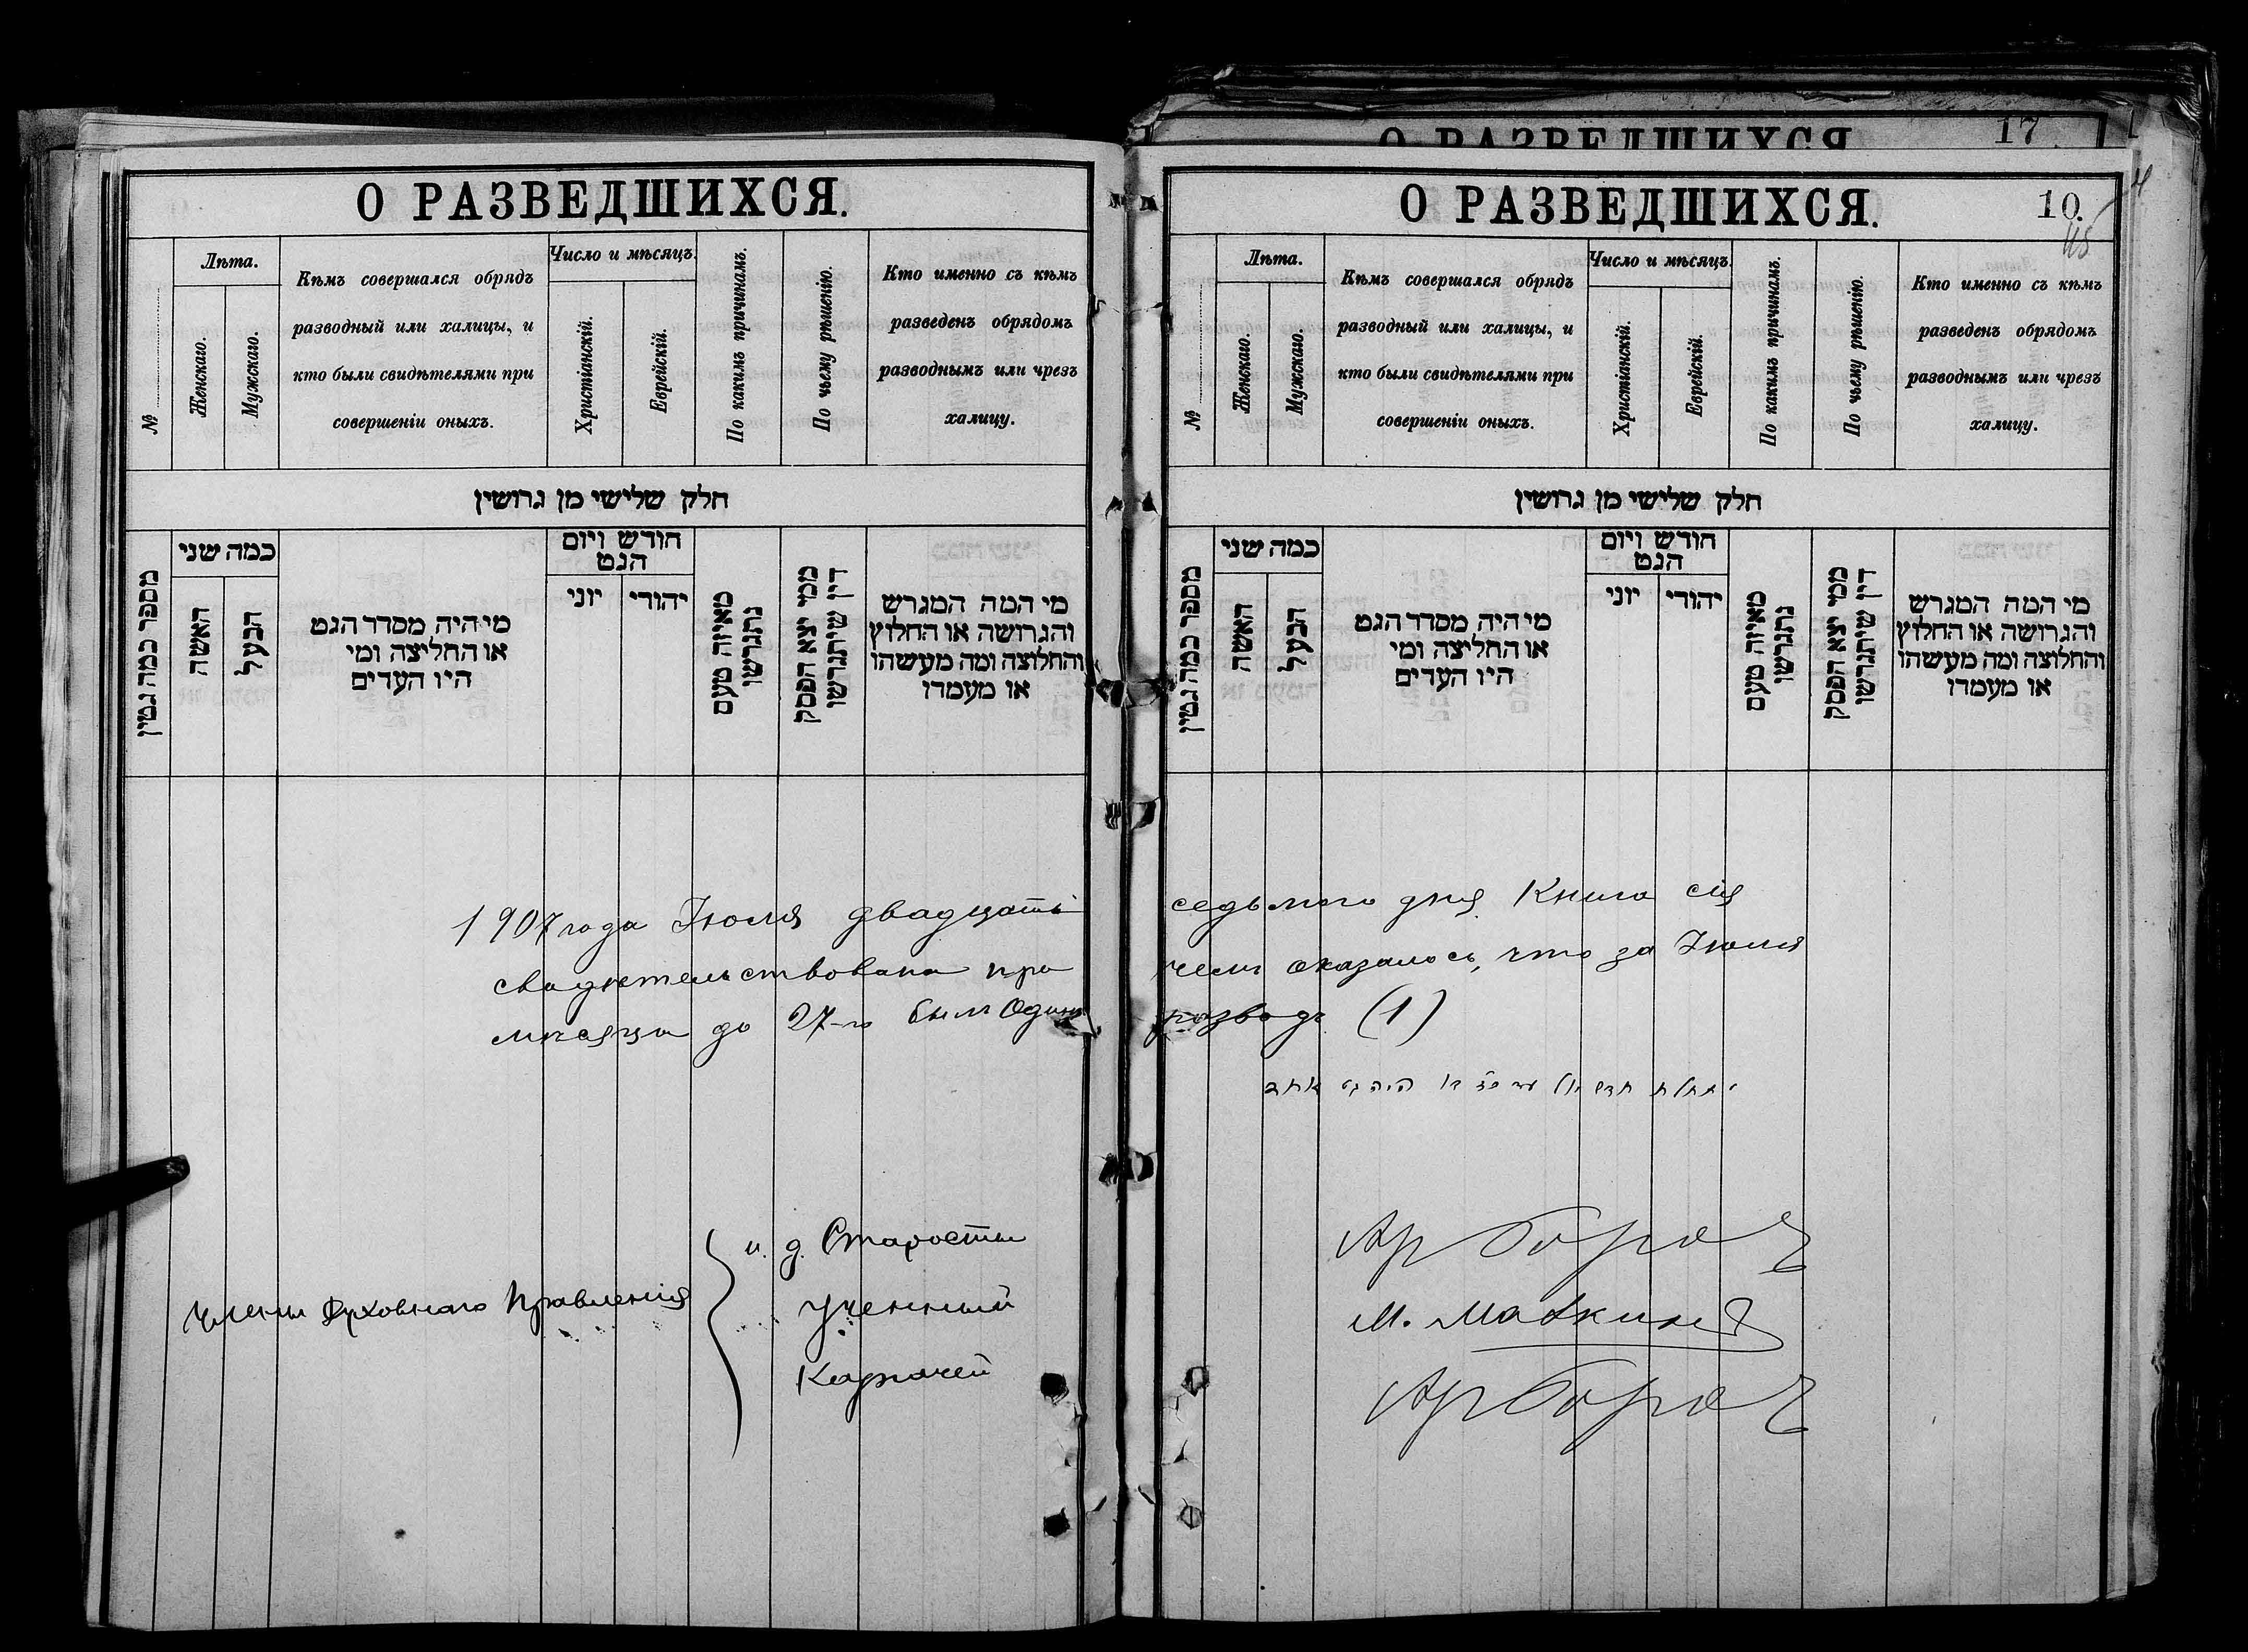 О РАЗВЕДШИХСЯ.
№
Лѣта.
Женскаго.
Мужскаго.
Кѣмъ совершался обрядъ
разводный или халицы, и
кто были свидѣтелями при
совершеніи оныхъ.
Число и мѣсяцъ.
Христіанскій.
Еврейскій.
По какимъ причинамъ.
По чьему рѣшенію.
Кто именно съ кѣмъ
разведенъ обрядомъ
разводнымъ или чрезъ
халицу.
חלק שלישי מן גרושין
מספר כמה גטין
כמה שני
האשה
הבעל
מי היה מסדר הגט
או החליצה ומי
היו העדים
חודש ויום
הגט
יוני
יהודי
מאיזה טעם
נתגרשו
ממי יצא הפסק
דין שיתגרשו
מי המה המגרש
והגרושה או החלוץ
והחלוצה ומה מעשהו
או מעמדו
1907 года Іюля двадцать
свидѣтельствована при
мѣсяца до 27-го былъ Одинъ
Члены Духовнаго Правленія
и. д. Старосты
Ученный
Казначей
О РАЗВЕДШИХСЯ
17
О РАЗВЕДШИХСЯ.
10.
№
Лѣта.
Женскаго.
Мужскаго.
Кѣмъ совершался обрядъ
разводный или халицы, и
кто были свидѣтелями при
совершеніи оныхъ.
Число и мѣсяцъ.
Христіанскій.
Еврейскій.
По какимъ причинамъ.
По чьему рѣшенію.
Кто именно съ кѣмъ
разведенъ обрядомъ
разводнымъ или чрезъ
халицу.
חלק שלישי מן גרושין
מספר כמה גטין
כמה שני
האשה
הבעל
מי היה מסדר הגט
או החליצה ומי
היו העדים
חודש ויום
הגט
יוני
יהודי
מאיזה טעם
נתגרשו
ממי יצא הפסק
דין שיתגרשו
מי המה המגרש
והגרושה או החלוץ
והחלוצה ומה מעשהו
או מעמדו
седьмого дня Книга сія
чемъ оказалось, что за Іюля
разводъ (1)
היה גט אחד
М.